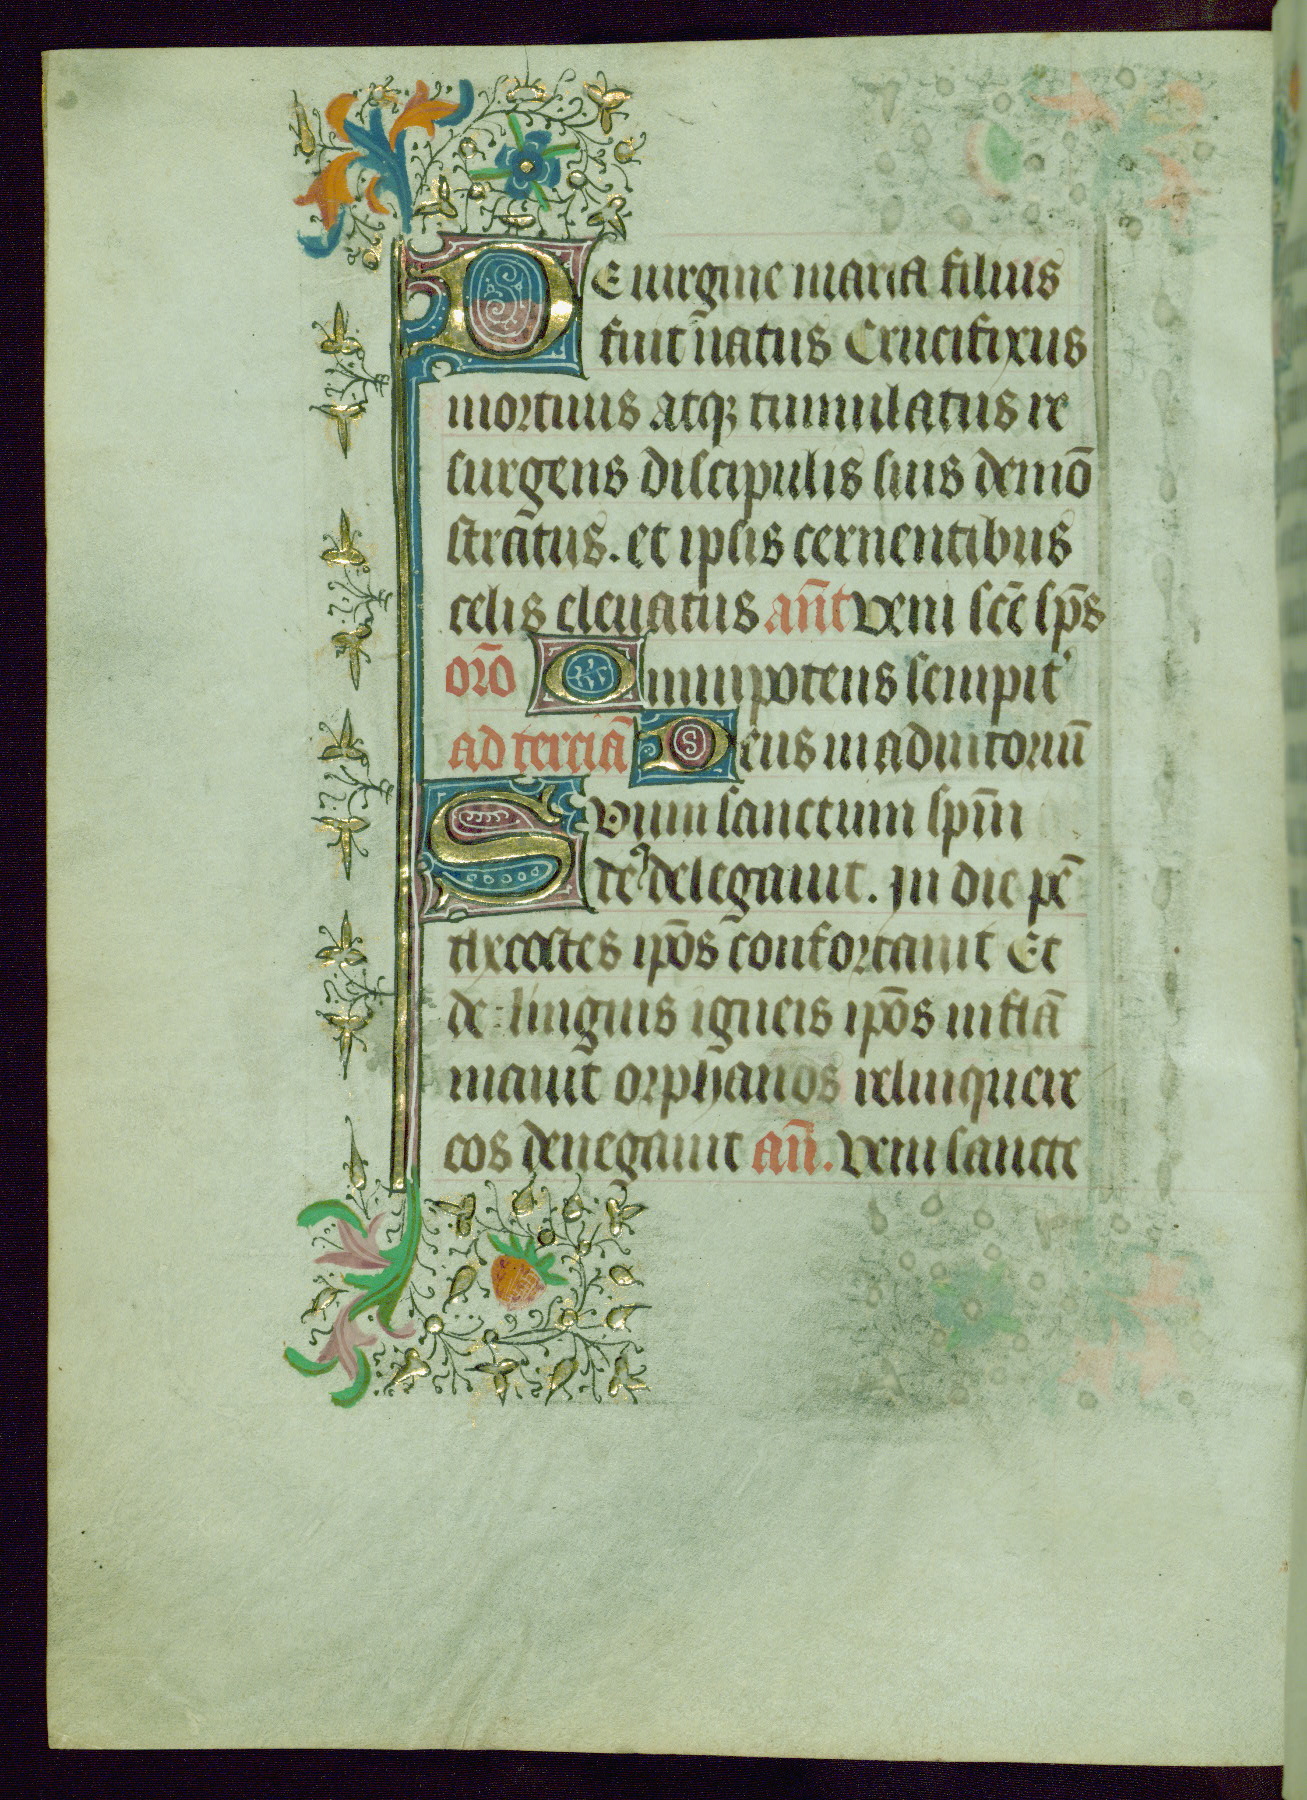 De uirgine maria filius
fuit natus Crucifixus
mortuus atqꝫ tumulatus re
surgens discipulis suis demō
stratus. et ipsis cernentibus
celis eleuatus an̄t Veni scē sp̄s
orō Omnipotens sempit̾
ad terciā Deus in adiutoriū
Suum sanctum sp̄m
deꝰ delegauit. In die pē
thecostes ip̄os confortauit Et
de linguis igneis ip̄os inflā
mauit orphanos relinquere
eos denegauit an̄. Veni sancte